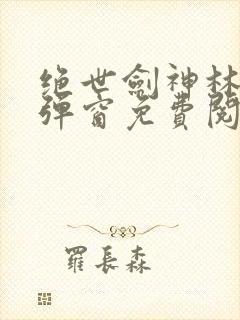 绝世劍神林
彈窗免費閱
羅長森